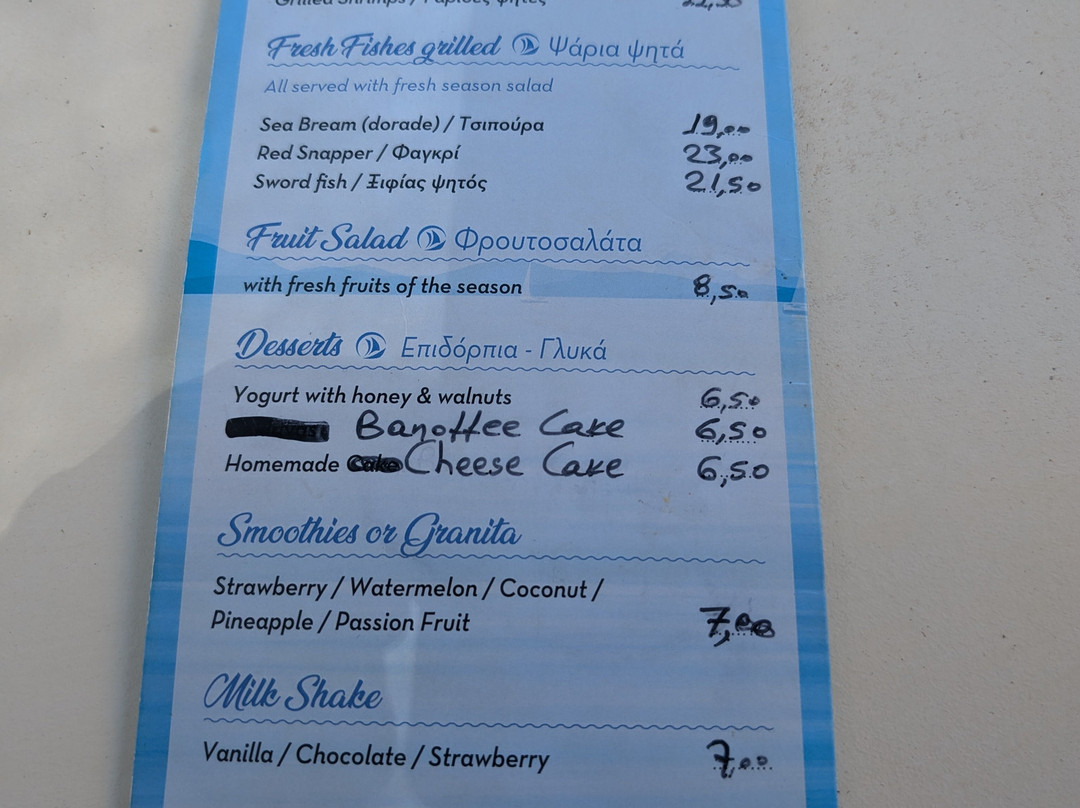 Grilled Shrimps / Γαρίδες ψητές 22,50
Fresh Fishes grilled Ψάρια ψητά
All served with fresh season salad
Sea Bream (dorade) / Τσιπούρα 19,00
Red Snapper / Φαγκρί 23,00
Sword fish / Ξιφίας ψητός 21,50
Fruit Salad Φρουτοσαλάτα
with fresh fruits of the season 8,50
Desserts Επιδόρπια - Γλυκά
Yogurt with honey & walnuts 6,50
Banoffee Cake 6,50
Homemade Cheese Cake 6,50
Smoothies or Granita
Strawberry / Watermelon / Coconut /
Pineapple / Passion Fruit 7,00
Milk Shake
Vanilla / Chocolate / Strawberry 7,00